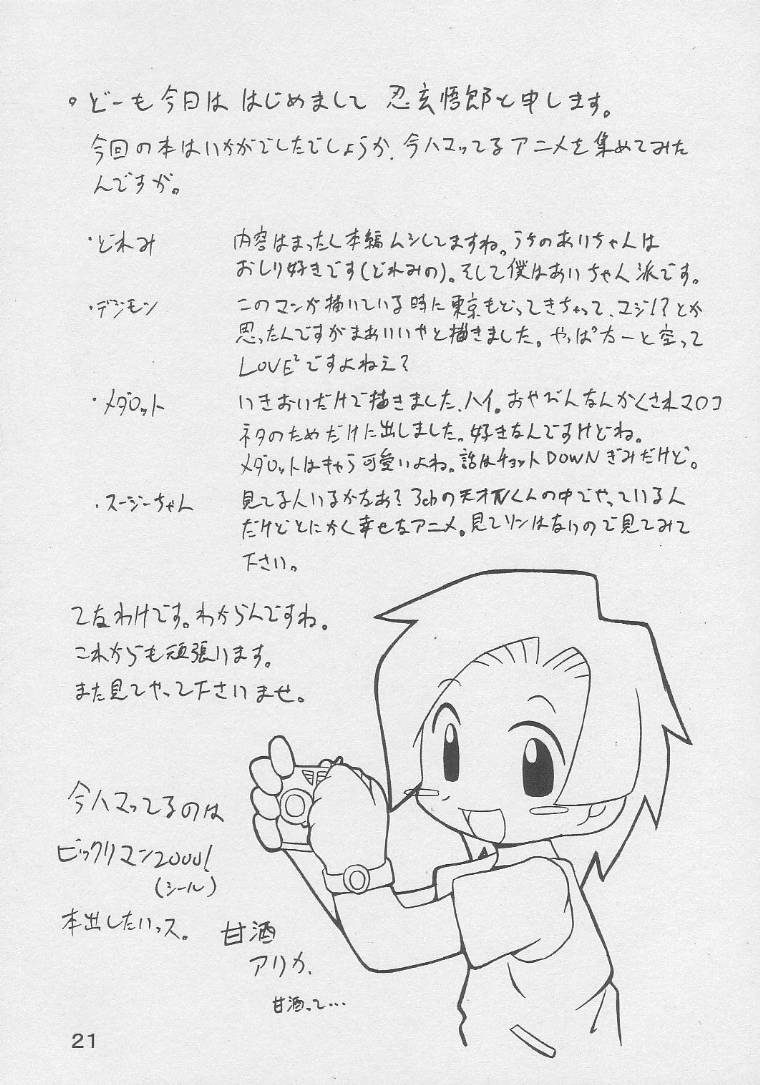 どーも今日は はじめまして 忍玄悟郎と申します。
今回の本はいかがでしたでしょうか、今ハマッてるアニメを集めてみた
んですが。
・どれみ 内容はまったく本編ムシしてますね。うちのあいちゃんは
おしり好きです(どれみの)。そして僕はあいちゃん派です。
・デジモン このマンガ描いている時に東京もどってきちゃって、マジ!?とか
思ったんですがまあいいやと描きました。やっぱ太一と空って
LOVE²ですよねぇ?
・メダロット いきおいだけで描きました、ハイ。おやびんなんかくされマロコ
ネタのためだけに出しました。好きなんですけどね。
メダロットはキャラ可愛いよね。話はチョットDOWNぎみだけど。
・スージーちゃん 見てる人いるかなあ? 3chの天才くんの中でやっているん
だけどとにかく幸せなアニメ。見てソンはないので見てみて
下さい。
てなわけです。わからんですね。
これからも頑張ります。
また見てやって下さいませ。
今ハマッてるのは
ビックリマン2000!
(シール)
本出したいっス。
甘酒
アリカ、
甘酒って…
21